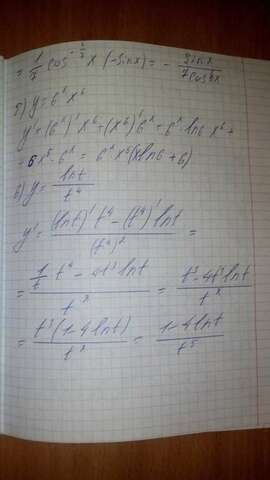 = 1/7 cos^(-6/7) x (-sin x) = - sin x / 7cos^6 x
5) y = 6^x x^6
y' = (6^x)' x^6 + (x^6)' 6^x = 6^x · ln6 x^6 +
+ 6x^5 · 6^x = 6^x x^5 (x ln6 + 6)
6) y = lnt / t^4
y' = ((lnt)' t^4 - (t^4)' lnt) / (t^4)^2 =
= (1/t t^4 - 4t^3 lnt) / t^8 = (t^3 - 4t^3 lnt) / t^8
= t^3(1 - 4lnt) / t^8 = (1 - 4lnt) / t^5